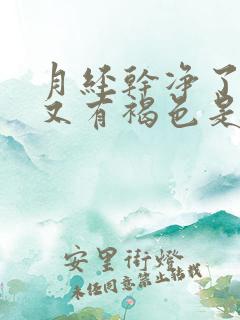 月经幹净了
又有褐色是
安里街燈
未经同意禁止转载